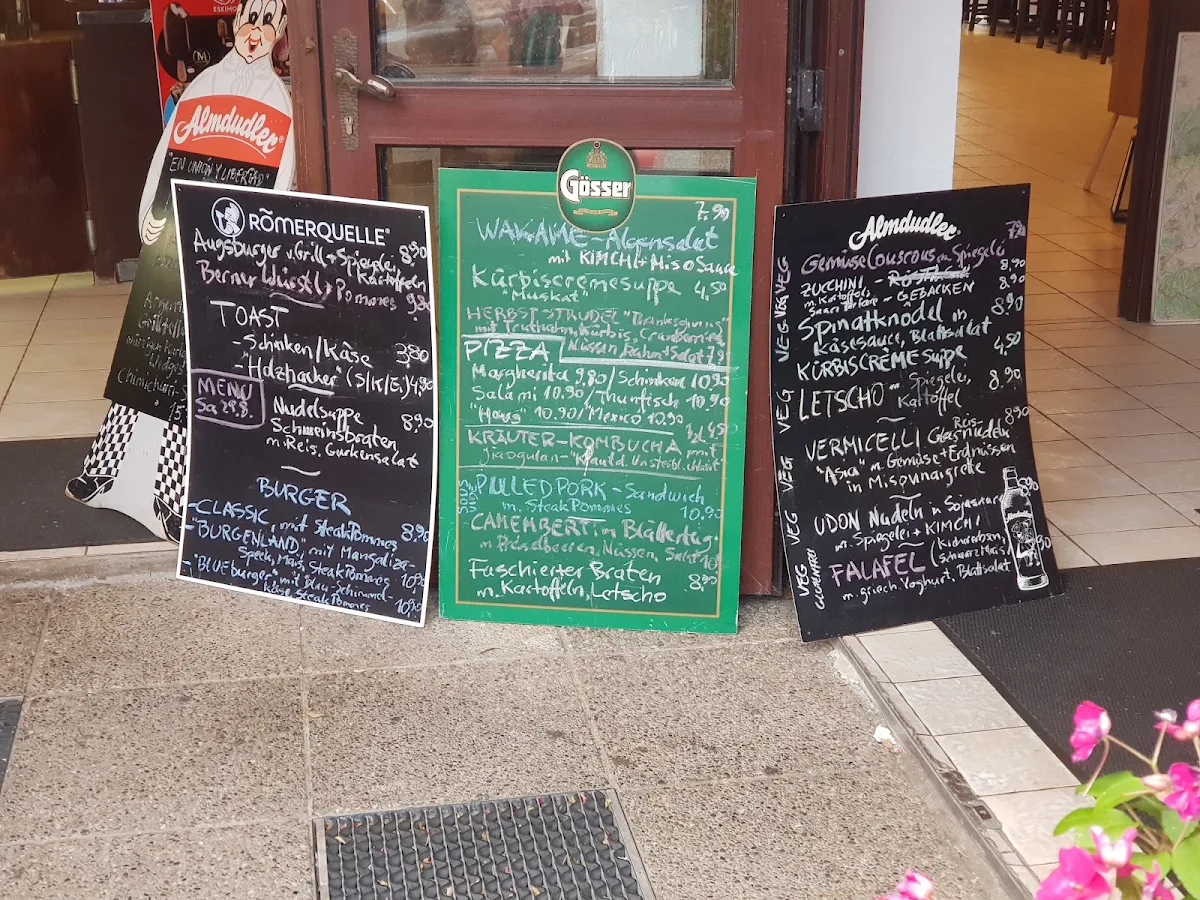 ESKIMO
Almdudler
"EN UNIÓN Y LIBERTAD"
Chimichurri
RÖMERQUELLE
Augsburger v. Grill + Spiegelei 8,90
Kartoffeln
Berner Würstl, Pommes 9,80
TOAST
- Schinken/Käse 3,80
- "Holzhacker" (S/K/E,) 4,90
MENÜ
Sa 29.8.
Nudelsuppe
Schweinsbraten 8,90
m. Reis, Gurkensalat
BURGER
- CLASSIC, mit SteakPommes 8,90
- "BURGENLAND" mit Mangaliza-
Speck, Mais, SteakPommes - 10,90
- BLUEburger mit
Käse, SteakPommes - 10,90
Gösser
7,90
WAKAME - Algensalat
mit KIMCHI + Miso Sauce
Kürbiscremesuppe 4,50
"Muskat"
HERBST STRUDEL "Thanksgiving"
mit Truthahn, Kürbis, Cranberries,
Nüssen, Rahm + Salat 7,90
PIZZA
Margherita 9,80 / Schinken 10,90
Salami 10,90 / Thunfisch 10,90
"Haus" 10,90 / Mexico 10,90
KRÄUTER - KOMBUCHA
PULLED PORK - Sandwich
m. Steak Pommes 10,90
CAMEMBERT in Blätterteig
m. Preiselbeeren, Nüssen, Salat
Faschierter Braten 8,90
m. Kartoffeln, Letscho
Almdudler
VEG VEG VEG
Gemüse Couscous m. Spiegelei
ZUCHINI - GEBACKEN 8,90
m. Kartoffel,
Sauce Tartare
Spinatknödel in 8,90
Käsesauce, Blattsalat
KÜRBISCREMESUPPE 4,50
VEG
LETSCHO m. Spiegelei, 8,90
Kartoffel
VEG
VERMICELLI Reis-
Glasnudeln 8,90
"Asia" m. Gemüse + Erdnüssen
in Misovinaigrette
VEG
UDON Nudeln in Sojasauce
m. Spiegelei + KIMCHI
VEG
GLUTENFREI
FALAFEL (Kichererbsen,
Schwarz Mais)
m. griech. Yoghurt, Blattsalat